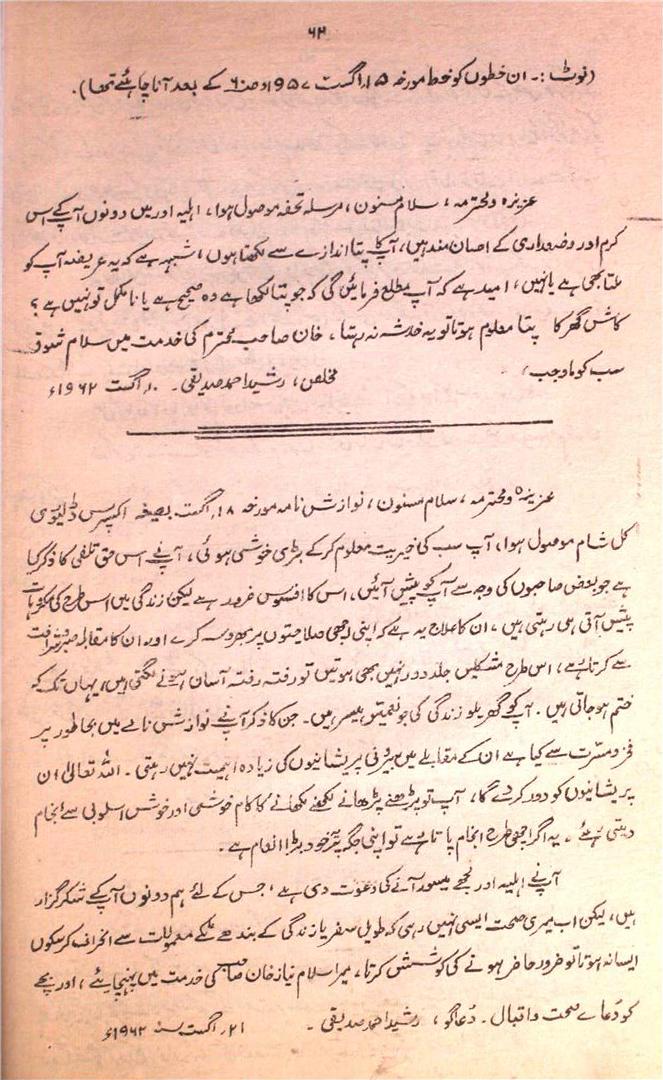 ۶۳
(نوٹ :۔ ان خطوں کو خط مورخہ ۱۵؍ اگست ۱۹۵۷ء صفحہ ۶ کے بعد آنا چاہئے تھا)۔
عزیزہ و محترمہ، سلام مسنون، مرسلہ تحفہ موصول ہوا، اہلیہ اور میں دونوں آپ کے اس
کرم اور وضعداری کے احسان مند ہیں، آپ کا پتا اندازے سے لکھتا ہوں، شبہہ ہے کہ یہ عریضہ آپ کو
ملتا بھی ہے یا نہیں، امید ہے کہ آپ مطلع فرمائیں گی کہ جو پتا لکھا ہے وہ صحیح ہے یا نامکمل تو نہیں ہے؟
کاش گھر کا پتا معلوم ہوتا تو یہ خدشہ نہ رہتا، خان صاحب محترم کی خدمت میں سلام شوق
سب کو ماوجب، مخلص، رشید احمد صدیقی۔ ۱۰؍ اگست ۱۹۶۲ء
عزیزہ و محترمہ، سلام مسنون، نوازش نامہ مورخہ ۱۸؍ اگست بصیغہ اکسپرس ڈلیوری
کل شام موصول ہوا، آپ سب کی خیریت معلوم کر کے بڑی خوشی ہوئی، آپ نے اس حق تلفی کا ذکر کیا
ہے جو بعض صاحبوں کی وجہ سے آپ کو پیش آئیں، اس کا افسوس ضرور ہے لیکن زندگی میں اس طرح کی مکروہات
پیش آتی ہی رہتی ہیں، ان کا علاج یہ ہے کہ اپنی اچھی صلاحیتوں پر بھروسہ کرے اور ان کا مقابلہ صبر و شرافت
سے کرتا رہے، اس طرح مشکلیں جلد دور نہیں بھی ہوتیں تو رفتہ رفتہ آسان ہونے لگتی ہیں، یہاں تک کہ
ختم ہو جاتی ہیں۔ آپ کو گھریلو زندگی کی جو نعمتیں میسر ہیں۔ جن کا ذکر آپ نے نوازش نامے میں بجا طور پر
فخر و مسرت سے کیا ہے ان کے مقابلے میں بیرونی پریشانیوں کی زیادہ اہمیت نہیں رہتی۔ اللہ تعالیٰ ان
پریشانیوں کو دور کر دے گا، آپ تو پڑھنے پڑھانے لکھنے لکھانے کا کام خوشی اور خوش اسلوبی سے انجام
دیتی رہئے۔ یہ اگر اچھی طرح انجام پاتا رہے تو اپنی جگہ پر خود بڑا انعام ہے۔
آپ نے اہلیہ اور مجھے میسور آنے کی دعوت دی ہے، جس کے لئے ہم دونوں آپ کے شکر گزار
ہیں، لیکن اب میری صحت ایسی نہیں رہی کہ طویل سفر یا زندگی کے بندھے ٹکے معمولات سے انحراف کر سکوں
ایسا نہ ہوتا تو ضرور حاضر ہونے کی کوشش کرتا، میرا سلام نیاز خان صاحب کی خدمت میں پہنچائیے، اور بچے
کو دعائے صحت و اقبال۔ دعاگو، رشید احمد صدیقی۔ ۲۱؍ اگست سنہ ۱۹۶۲ء